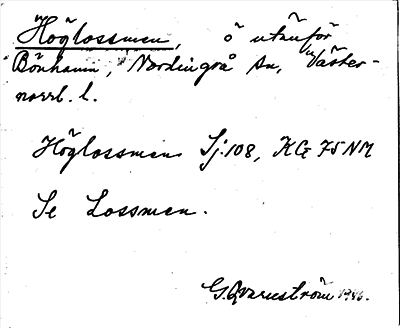 Höglossmen, ö utanför
Bönhamn, Nordingrå sn, Väster-
norrl. l.
Höglossmen Sj. 108, KG 75 NM
Se Lossmen.
G. Qvarnström 1946.